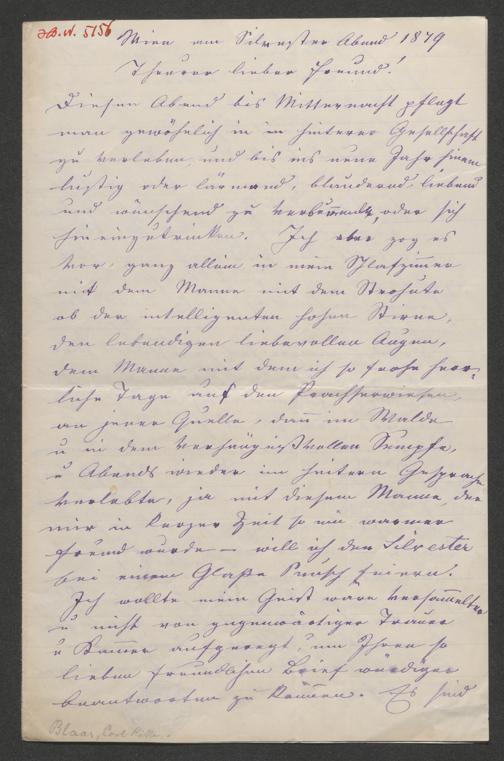 H.I.N. 5156
Wien am Silvester Abend 1879
Theurer lieber Freund!
Diesen Abend bis Mitternacht pflegt
man gewöhnlich in in heiterer Gesellschaft
zu verleben, und bis ins neue Jahr hinein
lustig oder lärmend, plaudernd, liebend
und wünschend zu verbummeln, oder sich
hineinzutrinken. Ich aber zog es
vor, ganz allein in mein Schlafzimmer
mit dem Manne mit dem Strohute
ob der intelligenten hohen Stirne,
den lebendigen liebevollen Augen,
dem Manne mit dem ich so frohe herr-
liche Tage auf den
an jener Quelle, dann im Walde
u in dem verhängnißvollen Sumpfe,
u Abends wieder im heitern Gespräche
verlebte, ja mit diesem Manne, der
mir in kurzer Zeit so ein warmer
Freund wurde — will ich den Silvester
bei einem Glaße Punsch feiern.
Ich wollte mein Geist wäre versammelter
u nicht von gegenwärtiger Trauer
u Kummer aufgeregt, um Ihren so
lieben freundlichen Brief würdiger
beantworten zu können. Es sind
Blaas, Carl Ritter